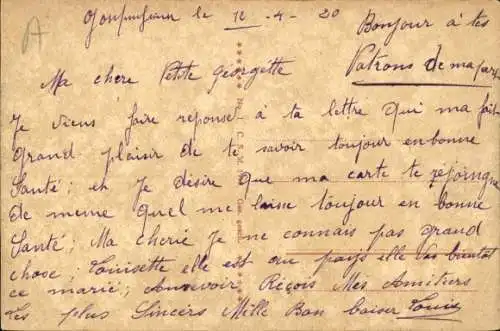 le 12 - 4 - 20
Bonjour à tes
Patrons de ma part
Ma chère Petite Georgette
Je viens faire reponse à ta lettre qui ma fait
grand plaisir de te savoir toujour en bonne
Santé; et je désire que ma carte te rejoingne
de meme quel me laisse toujour en bonne
Santé; Ma cherie Je ne connais pas grand
chose; Louisette elle est au pays elle vas bientot
ce marié; Reçois Mes Amitiers
les plus Sincers Mille Bon baiser Louis